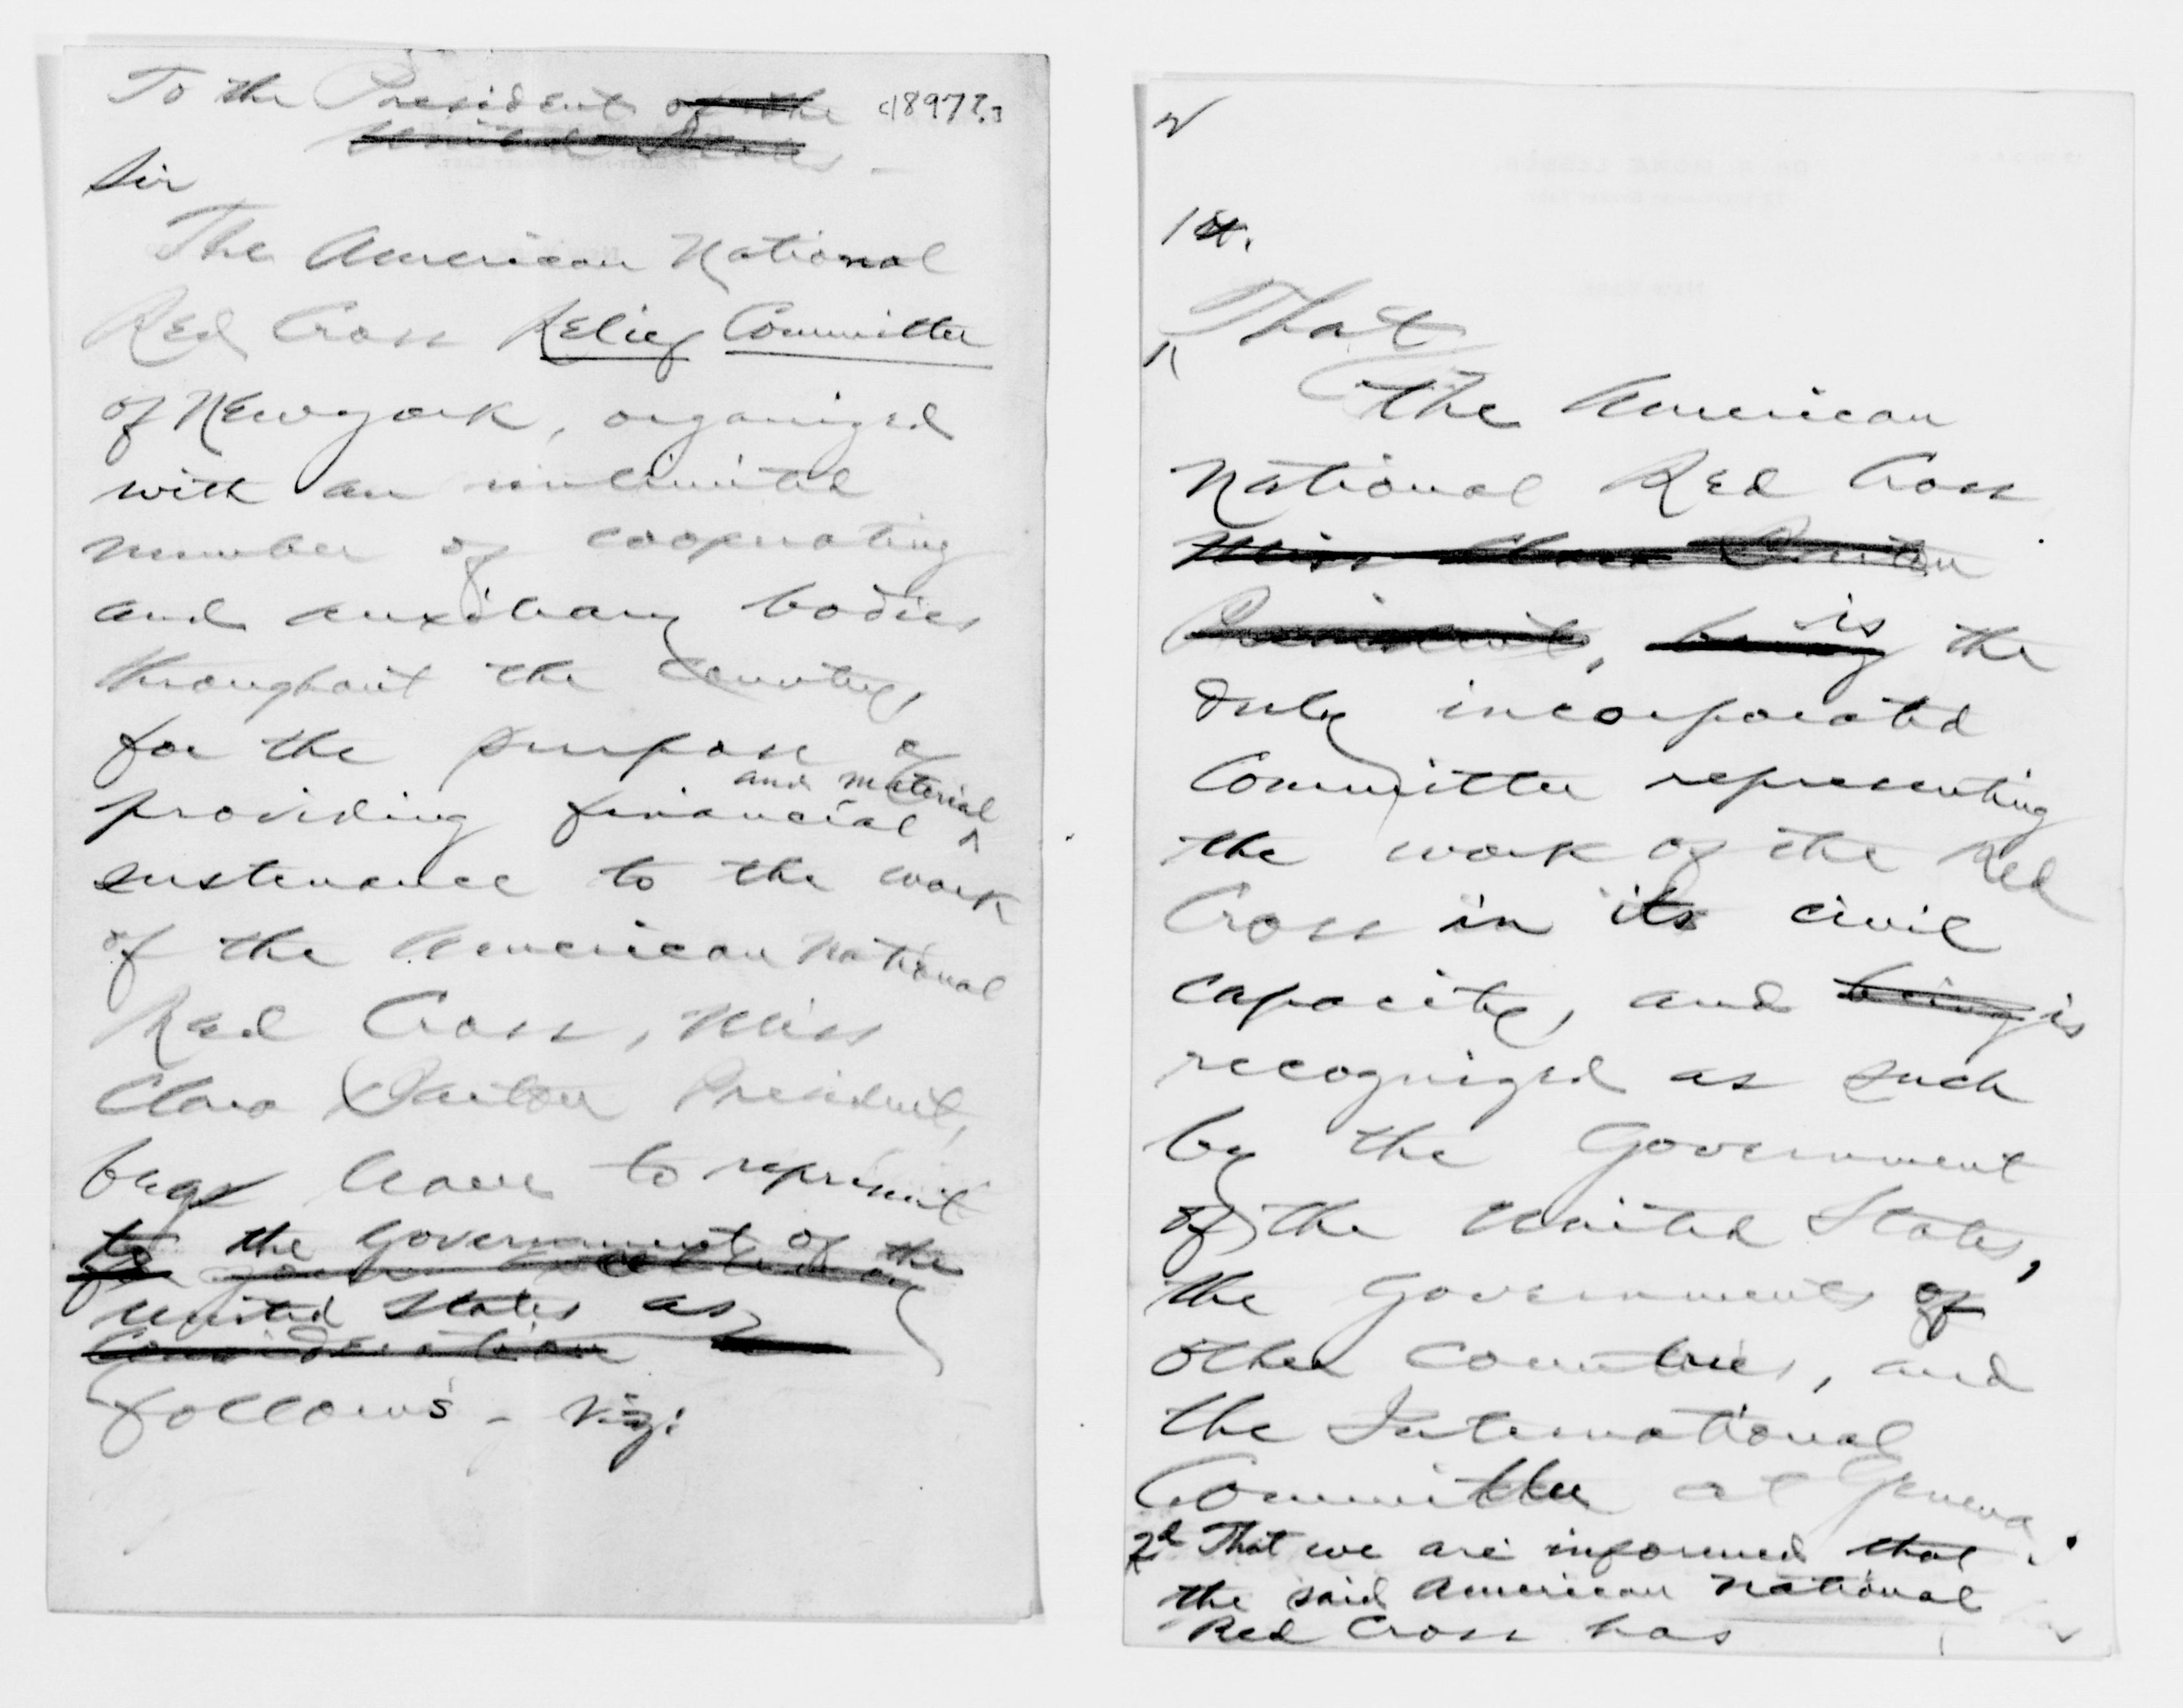 To the President of the [1897?]
United States -
Sir
The American National
Red Cross Relief Committee
of New york, organized
with an unlimited
number of cooperating
and auxiliary bodies
throughout the Country,
for the purpose of
and material
providing financial ^
sustenance to the work
of the American National
Red Cross, Miss
Clara Barton President,
begs leave to represent
to the Government of the
for your
United States as
Consideration
follows - viz:
2
1st.
That
The American
National Red Cross
Miss Clara Barton
is
President, being the
duly incorporated
Committee representing
the work of the Red
Cross in its civil
capacity, and being is
recognized as such
by the Government
of the United States,
the Governments of
other countries, and
the International
Committee at Geneva.
2d That we are informed that
the said American National
Red Cross has